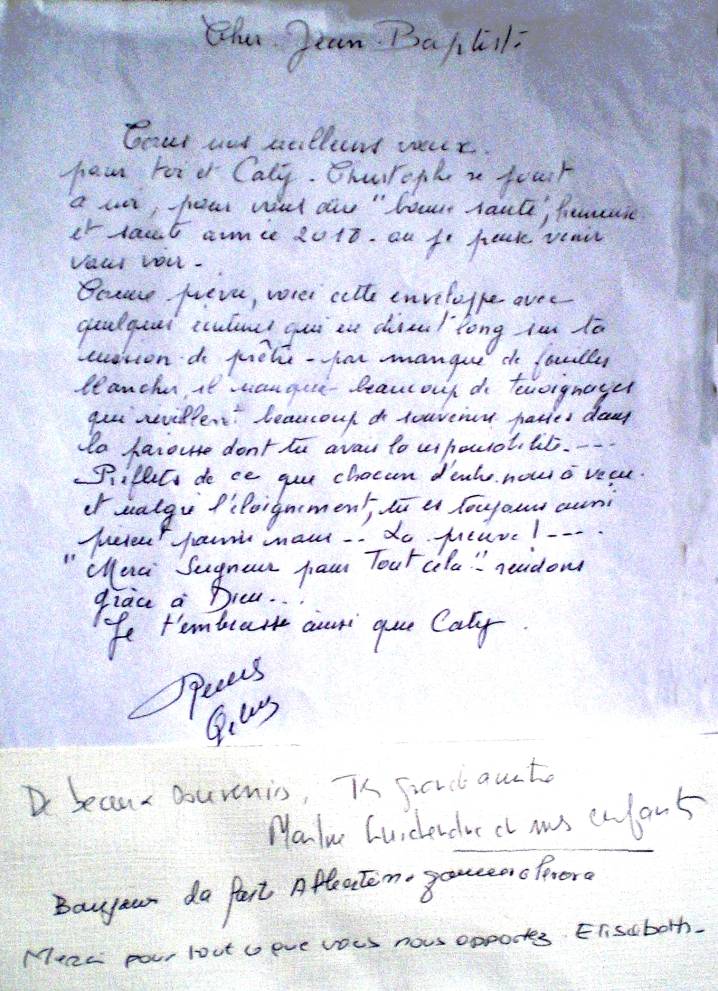 Cher Jean-Baptiste
Tous nos meilleurs vœux.
pour toi et Caty. Christophe se joint
a moi, pour vous dire "bonne santé", heureuse
et sainte année 2018. ou je peux venir
vous voir.
Comme prévu, voici cette enveloppe avec
quelques écritures qui en disent long sur ta
mission de prêtre - par manque de feuilles
blanches, il manque beaucoup de témoignages
qui réveillent beaucoup de souvenirs passés dans
la paroisse dont tu avais la responsabilité. ---
Reflets de ce que chacun d'entre nous à vécu.
et malgré l'éloignement, tu es toujours aussi
présent parmi nous -- La preuve ! ---.
"Merci Seigneur pour Tout cela" - rendons
grâce à Dieu...
Je t'embrasse ainsi que Caty.
De beaux souvenirs,
et mes enfants
Bonjour
Merci pour tout ce que vous nous apportez. Elisabeth-